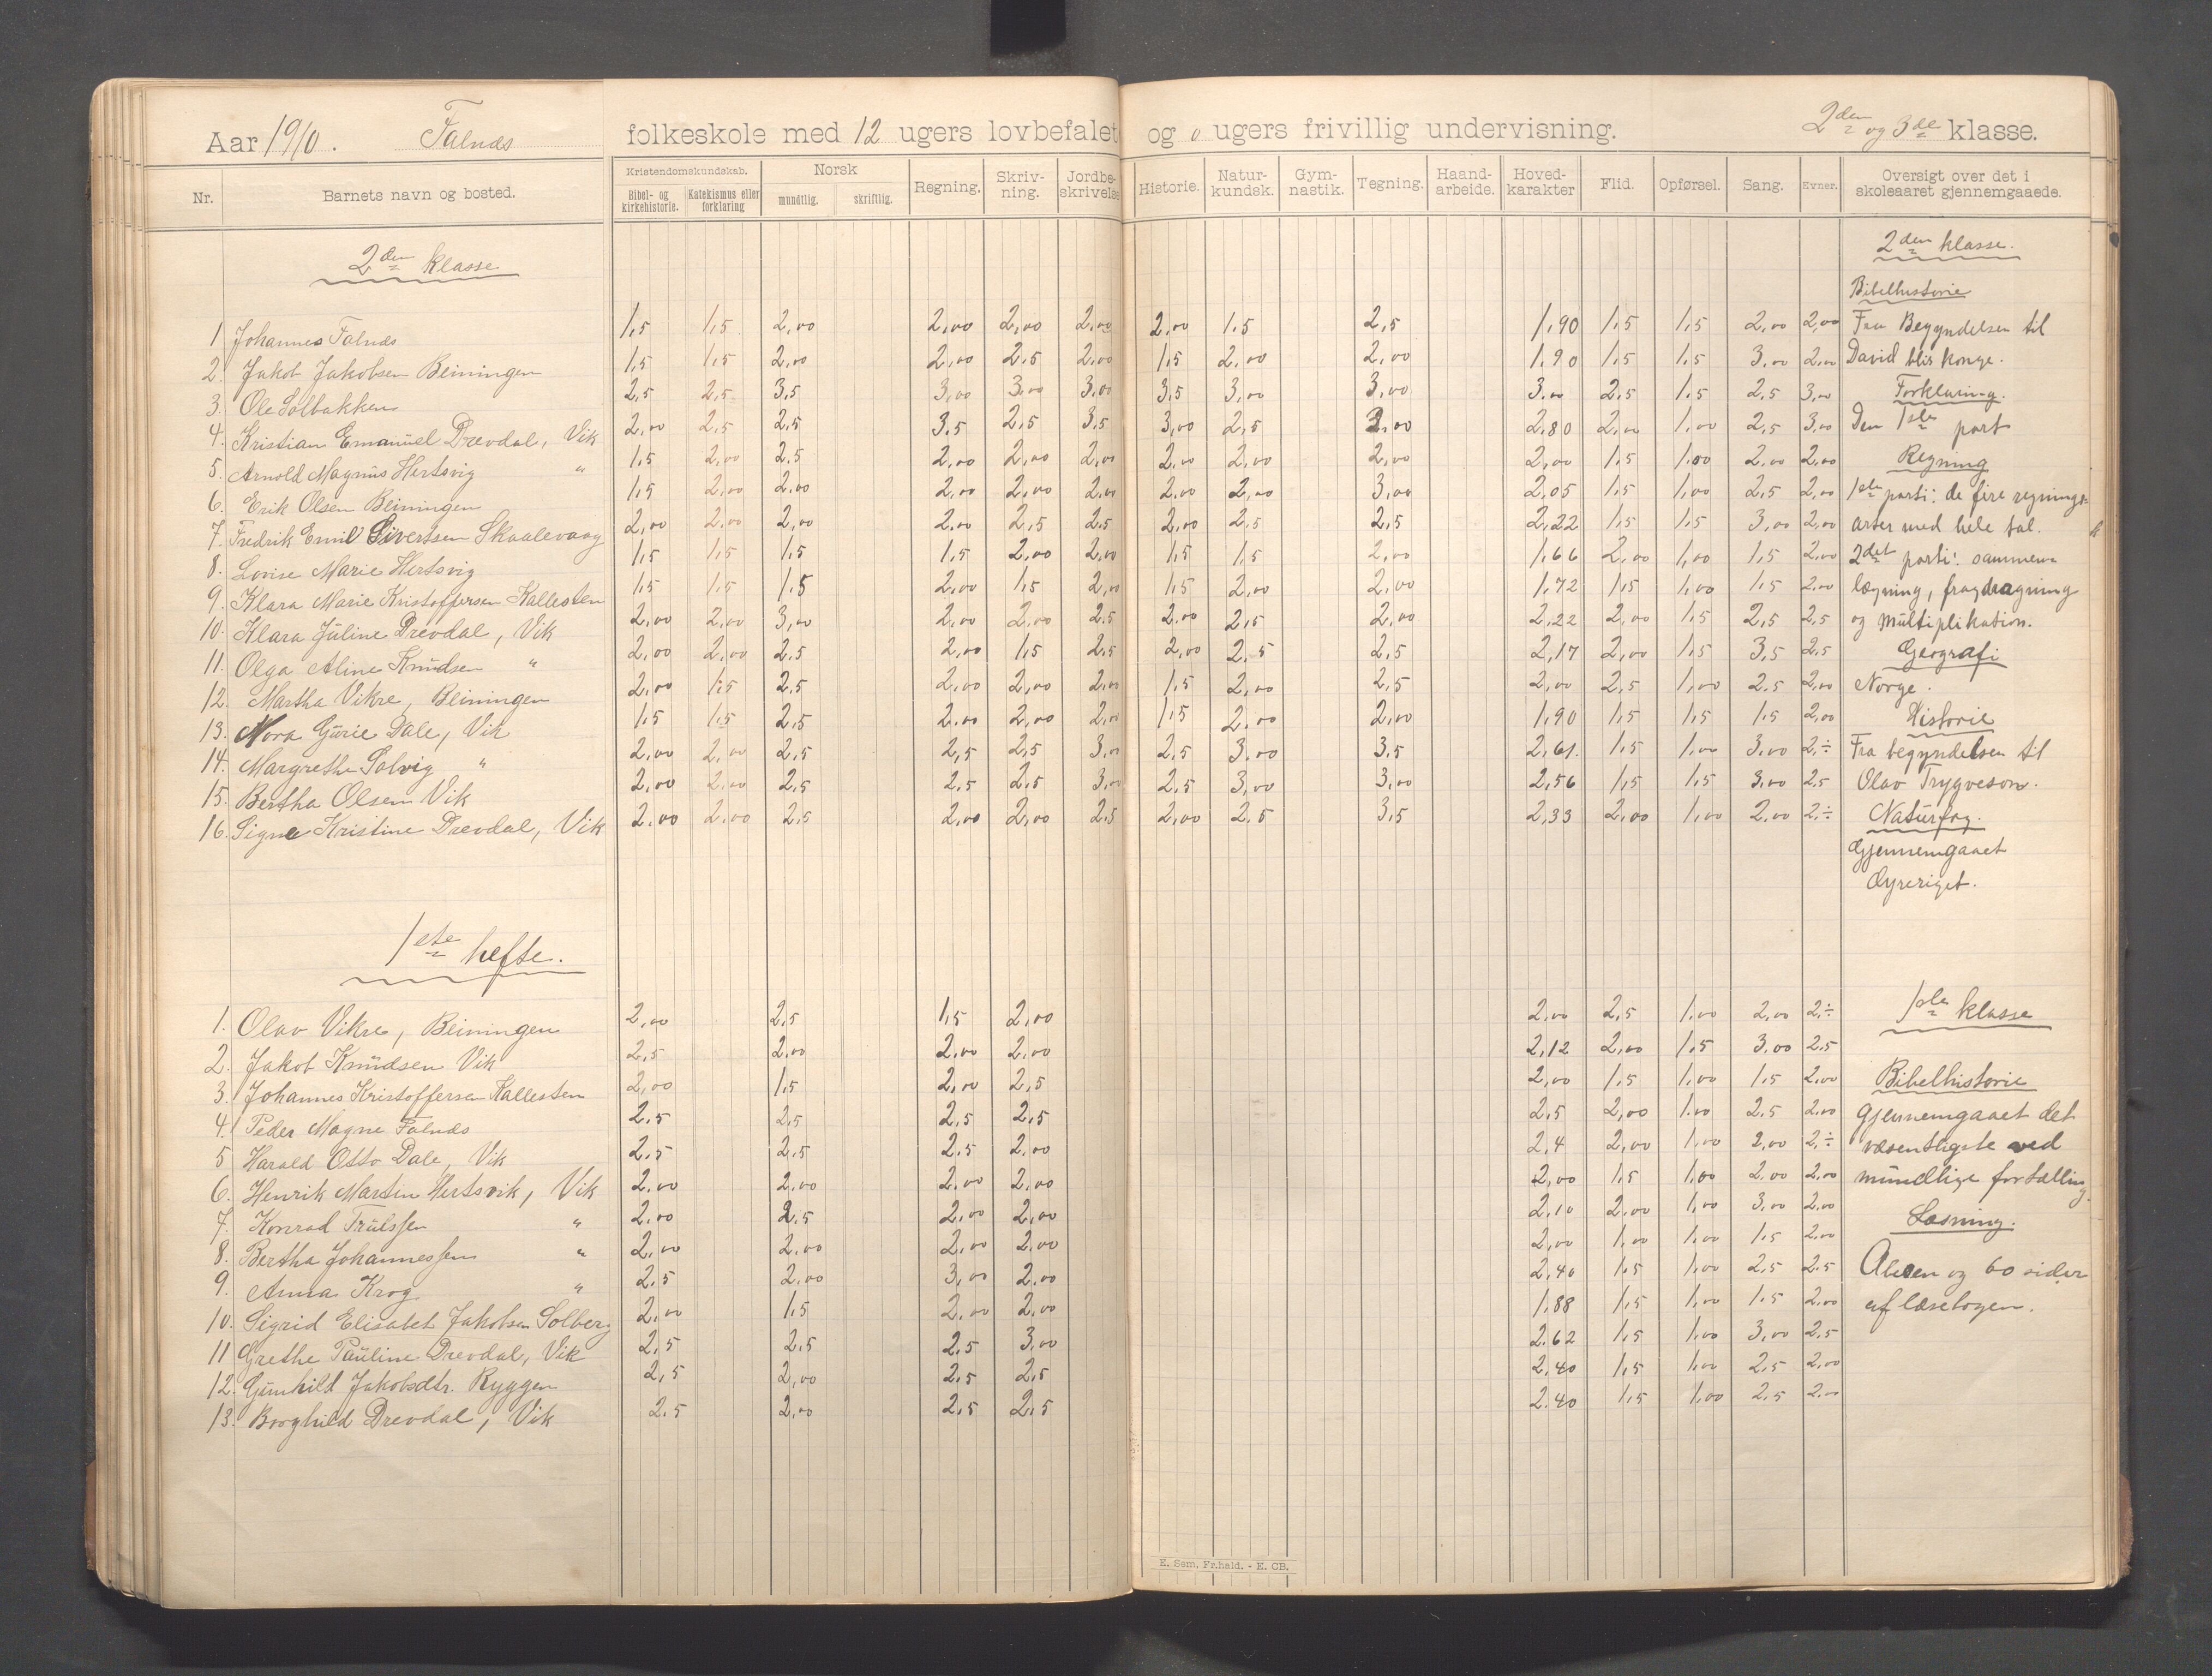 Aar 1910. Falnes folkeskole med 12 ugers lovbefalet og 0 ugers frivillig undervisning. 2den og 3de klasse.
Nr. Barnets navn og bosted. Kristendomskundskab. Bibel- og kirkehistorie. Katekismus eller forklaring Norsk mundtlig. skriftlig. Regning. Skriv-ning. Jordbe-skrivelse Historie. Natur-kundsk. Gym-nastik. Tegning. Haand-arbeide. Hoved-karakter Flid. Opførsel. Sang. Evner. Oversigt over det i skoleaaret gjennemgaaede.
2den klasse 2den klasse.
Bibelhistorie
1 Johannes Falnes 1,5 1,5 2,00 2,00 2,00 2,00 2,00 1,5 2,5 1,90 1,5 1,5 2,00 2,00 Fra Begyndelsen til
2. Jakob Jakobsen Beiningen 1,5 1,5 2,00 2,00 2,5 2,00 1,5 2,00 2,00 1,90 1,5 1,5 3,00 2,00 David blir konge.
3. Ole Solbakken 2,5 2,5 3,5 3,00 3,00 3,00 3,5 3,00 3,00 3,00 2,5 1,5 2,5 3,00 Forklaring.
4. Kristian Emanuel Drevdal, Vik 2,00 2,5 2,5 3,5 2,5 3,5 3,00 2,5 3,00 2,80 2,00 1,00 2,5 3,00 Den 1ste part
5. Arnold Magnus Hertsvig " 1,5 2,00 2,5 2,00 2,00 2,00 2,00 2,00 2,00 2,00 1,5 1,00 2,00 2,00 Regning
6. Erik Olsen Beiningen 1,5 2,00 2,00 2,00 2,00 2,00 2,00 2,00 3,00 2,05 1,5 1,00 2,5 2,00 1ste parti: de fire regnings-
7. Fredrik Emil Sivertsen Skaalevaag 2,00 2,00 2,00 2,00 2,5 2,5 2,00 2,5 2,5 2,22 1,5 1,5 3,00 2,00 arter med hele tal.
8. Lovise Marie Hertsvig 1,5 1,5 1,5 1,5 2,00 2,00 1,5 1,5 2,00 1,66 2,00 1,00 1,5 2,00 2det parti: sammen-
9. Klara Marie Kristoffersen Kallesten 1,5 1,5 1,5 2,00 1,5 2,00 1,5 2,00 2,00 1,72 1,5 1,00 1,5 2,00 lægning, fradragning
10. Klara Juline Drevdal, Vik 2,00 2,00 3,00 2,00 2,00 2,5 2,00 2,5 2,00 2,22 2,00 1,5 2,5 2,5 og multiplikation.
11. Olga Aline Knudsen " 2,00 2,00 2,5 2,00 1,5 2,5 2,00 2,5 2,5 2,17 2,00 1,5 3,5 2,5 Geografi
12. Martha Vikre, Beiningen 2,00 1,5 2,5 2,00 2,00 2,00 1,5 2,00 2,5 2,00 2,5 1,00 2,5 2,00 Norge.
13. Nora Gurie Dale, Vik 1,5 1,5 2,5 2,00 2,00 2,00 1,5 2,00 2,00 1,90 1,5 1,5 1,5 2,00 Historie
14. Margrethe Solvig " 2,00 2,00 2,5 2,5 2,5 3,00 2,5 3,00 3,5 2,61. 1,5 1,00 3,00 2,÷ Fra begyndelsen til
15. Bertha Olsen Vik 2,00 2,00 2,5 2,5 2,5 3,00 2,5 3,00 3,00 2,56 1,5 1,5 3,00 2,5 Olav Trygveson.
16. Signe Kristine Drevdal, Vik 2,00 2,00 2,5 2,00 2,00 2,5 2,00 2,5 3,5 2,33 2,00 1,00 2,00 2,÷ Naturfag.
Gjennemgaaet
Dyreriget.
1ste hefte.
1. Olav Vikre, Beiningen 2,00 2,5 1,5 2,00 2,00 2,5 1,00 2,00 2,÷ 1ste klasse
2. Jakob Knudsen Vik 2,5 2,00 2,00 2,00 2,12 2,00 1,5 3,00 2,5
3. Johannes Kristoffersen Kallesten 2,00 1,5 2,00 2,5 2,00 1,5 1,00 1,5 2,00 Bibelhistorie
4. Peder Magne Falnes 2,5 2,5 2,5 2,5 2,5 2,00 1,00 2,5 2,00 Gjennemgaaet det
5 Harald Otto Dale, Vik 2,5 2,5 2,5 2,00 2,4 2,00 1,00 2,00 2,÷ væsentligste ved
6. Henrik Martin Hertsvik, Vik 2,00 2,00 2,00 2,00 2,00 1,5 1,00 2,00 2,00 mundtlige fortælling.
7. Konrad Trulssen " 2,00 2,5 2,00 2,00 2,10 2,00 1,00 3,00 2,00 Læsning.
8. Bertha Johannessen " 2,00 2,00 2,00 2,00 2,00 1,00 1,00 1,5 2,00
9. Anna Krog " 2,5 2,00 3,00 2,00 2,40 1,5 1,00 2,5 2,5 Abcen og 60 sider
10. Sigrid Elisabet Jakobsen Solberg 2,00 1,5 2,00 2,00 1,88 1,5 1,00 1,5 2,00 af læsebogen.
11 Grethe Pauline Drevdal, Vik 2,5 2,5 2,5 3,00 2,62 1,5 1,00 3,00 2,5
12. Gunhild Jakobsdtr. Ryggen 2,5 2,00 2,5 2,5 2,40 1,5 1,00 2,5 2,00
13. Borghild Drevdal, Vik 2,5 2,00 2,5 2,5 2.40 1,5 1,00 2,5 2,00
E. Sem, Fr.hald. - E. CB.